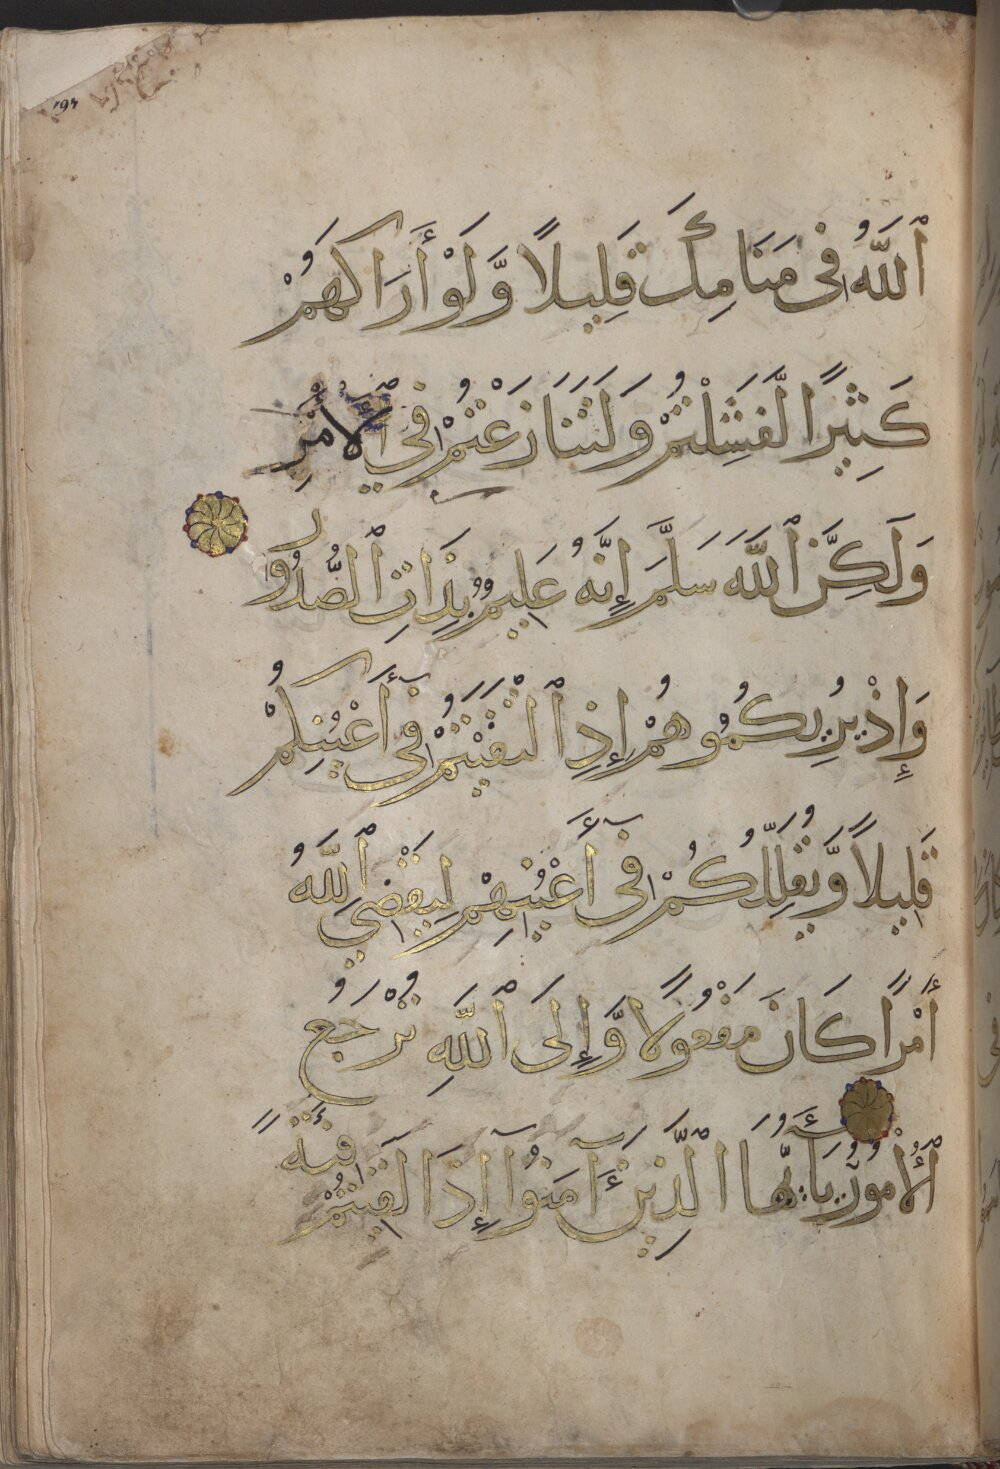 ٱللَّهُ فِى مَنَامِكَ قَلِيلًا وَّلَوْ أَرَاكَهُمْ
كَثِيرًا لَّفَشِلْتُمْ وَلَتَنَازَعْتُمْ فِي ٱلْأَمْرِ
وَلَٰكِنَّ ٱللَّهَ سَلَّمَ إِنَّهُ عَلِيمٌ بِذَاتِ ٱلصُّدُورِ
وَإِذْ يُرِيكُمُوهُمْ إِذِ ٱلْتَقَيْتُمْ فِىٓ أَعْيُنِكُمْ
قَلِيلًا وَّيُقَلِّلُكُمْ فِىٓ أَعْيُنِهِمْ لِيَقْضِيَ ٱللَّهُ
أَمْرًا كَانَ مَفْعُولًا وَّإِلَى ٱللَّهِ تُرْجَعُ
ٱلْأُمُورُ يَٰٓأَيُّهَا ٱلَّذِينَ ءَامَنُوٓا إِذَا لَقِيتُمْ فِئَةً